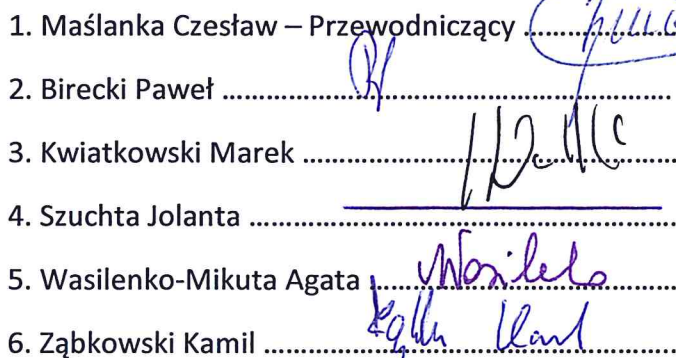 1. Maślanka Czesław – Przewodniczący ..................
2. Birecki Paweł ......................................................
3. Kwiatkowski Marek .............................................
4. Szuchta Jolanta ...................................................
5. Wasilenko-Mikuta Agata ....................................
6. Ząbkowski Kamil .................................................